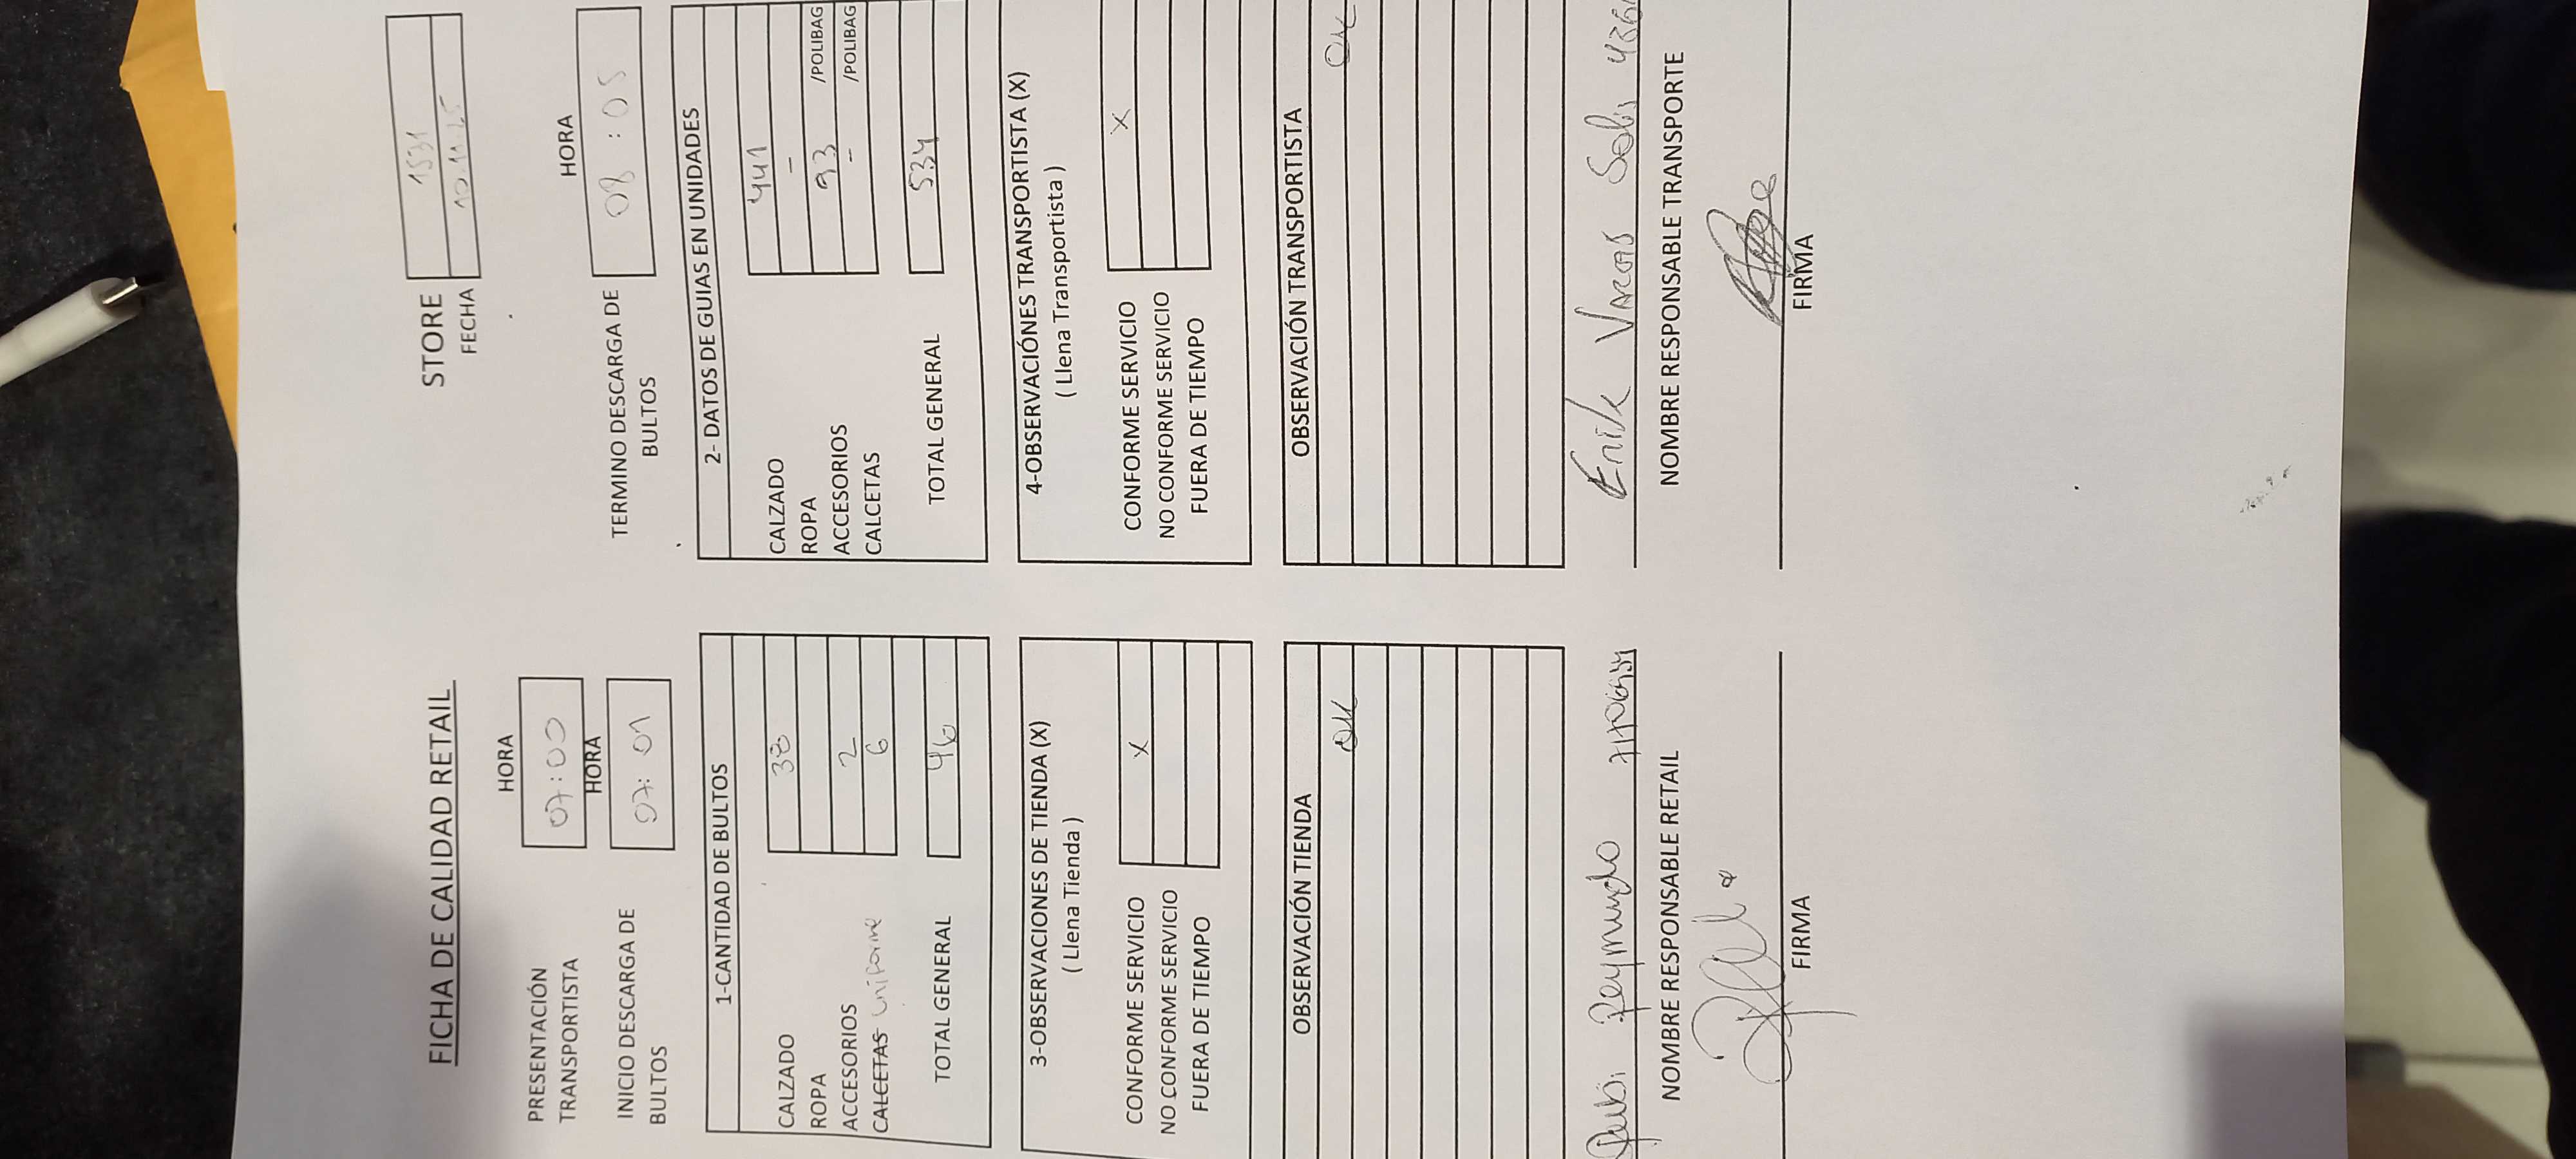 FICHA DE CALIDAD RETAIL
STORE 1531
FECHA 10.11.25
HORA
PRESENTACIÓN TRANSPORTISTA 07:00
HORA
INICIO DESCARGA DE BULTOS 07:01
HORA
TERMINO DESCARGA DE BULTOS 08:05
1-CANTIDAD DE BULTOS
CALZADO 38
ROPA
ACCESORIOS 2
CALCETAS Uniforme 6
TOTAL GENERAL 46
2- DATOS DE GUIAS EN UNIDADES
CALZADO 441
ROPA -
ACCESORIOS 93 /POLIBAG
CALCETAS - /POLIBAG
TOTAL GENERAL 534
3-OBSERVACIONES DE TIENDA (X)
( Llena Tienda )
CONFORME SERVICIO X
NO CONFORME SERVICIO
FUERA DE TIEMPO
4-OBSERVACIÓNES TRANSPORTISTA (X)
( Llena Transportista )
CONFORME SERVICIO X
NO CONFORME SERVICIO
FUERA DE TIEMPO
OBSERVACIÓN TIENDA
OK
OBSERVACIÓN TRANSPORTISTA
OK
Raymundo
NOMBRE RESPONSABLE RETAIL
FIRMA
Vargas Solis
NOMBRE RESPONSABLE TRANSPORTE
FIRMA